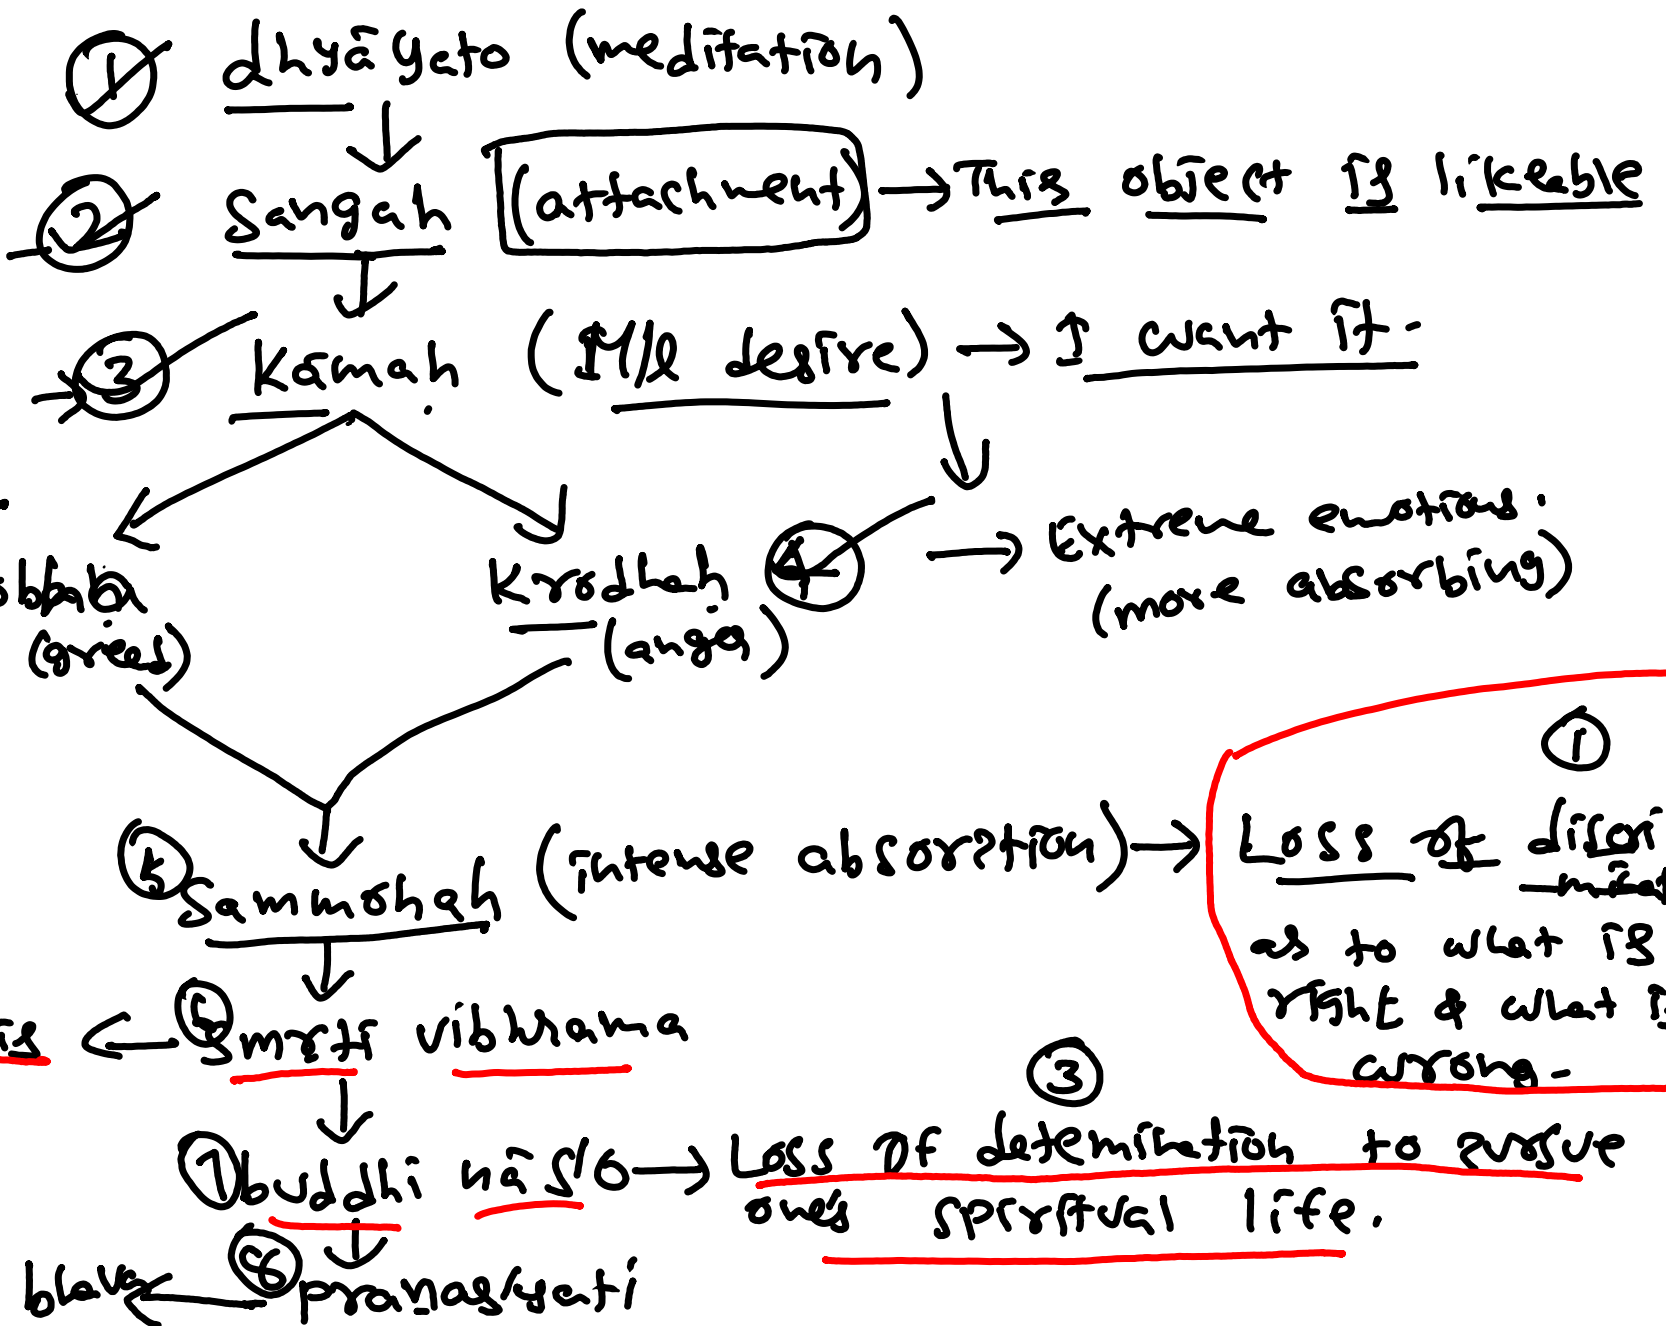 1 dhyāyato (meditation)
2 Sangah (attachment) → This object is likeable
3 Kāmah (M/l desire) → I want it.
(greed) Krodhah 4 → Extreme emotions.
(anger) (more absorbing)
1
5 Sammohah (intense absorption) → Loss of discri
as to what is
right & what is
wrong.
is ← 6 Smṛti vibhrama
3
7 buddhi nāś'o → Loss of detemination to pursue
ones spiritual life.
← 8 pranas'yati